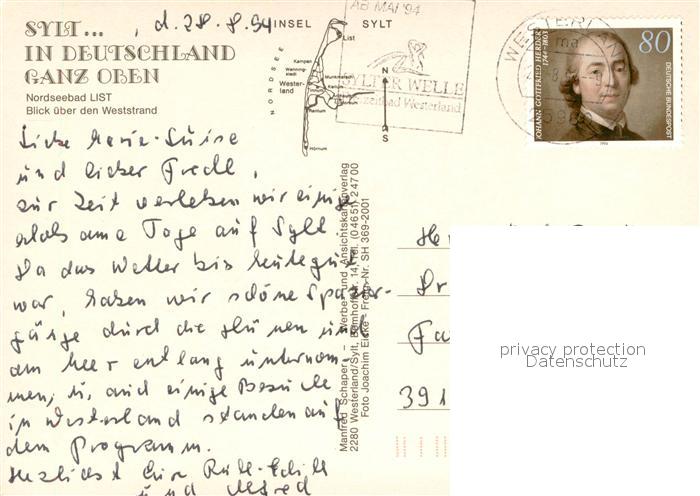 SYLT...
IN DEUTSCHLAND
GANZ OBEN
Nordseebad LIST
Blick über den Weststrand
, d. 28.8.94
INSEL SYLT
NORDSEE
List
Kampen
Wenning-
stedt
Wester-
land
Munkmarsch
Keitum
Rantum
Hörnum
N
S
AB MAI '94
SYLTER WELLE
Freizeitbad Westerland
WESTERLAND
80
JOHANN GOTTFRIED HERDER
1744-1803
DEUTSCHE BUNDESPOST
1994
Liebe Marie-Luise
und lieber Fredl,
zur Zeit verleben wir einige
erholsame Tage auf Sylt.
Da das Wetter bis heute gut
war, haben wir schöne Spazier-
gänge durch die Dünen und
am Meer entlang unternom-
men, u. auch einige Besuche
in Westerland standen auf
dem Programm.
Herzlichst Eure Ruth-Edith
und Alfred
Manfred Schaper – Werbe- und Ansichtskartenverlag
2280 Westerland/Sylt, Bahnhofstr. 14, Tel. (04651) 24700
Foto Joachim Eicke – Freig.-Nr. SH 369-2001
391
privacy protection
Datenschutz